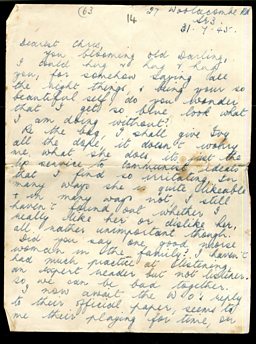 (63
14
27 Woolacombe Rd
SE3.
31-7-45.
Dearest Chris,
You blooming old Darling,
I could hug & hug & hug
you, for somehow saying all
the right things, & being your so
beautiful self, do you wonder
that I get so blue, look what
I am doing without!
Re the bag, I shall give Ivy
all the dope, it doesn't worry
me, what she does, its just the
lip service to communist ideas
that I find so irritating. In
many ways she is quite likeable
& in many ways not, I still
haven't found out whether I
really like her or dislike her,
all rather unimportant though.
Did you say one good morse
woman in the family? I haven't
had much practice at listening,
an expert reader but not listener.
So we can be bad together.
I now await the W.O's reply
to their official paper, seems to
me their playing for time, or